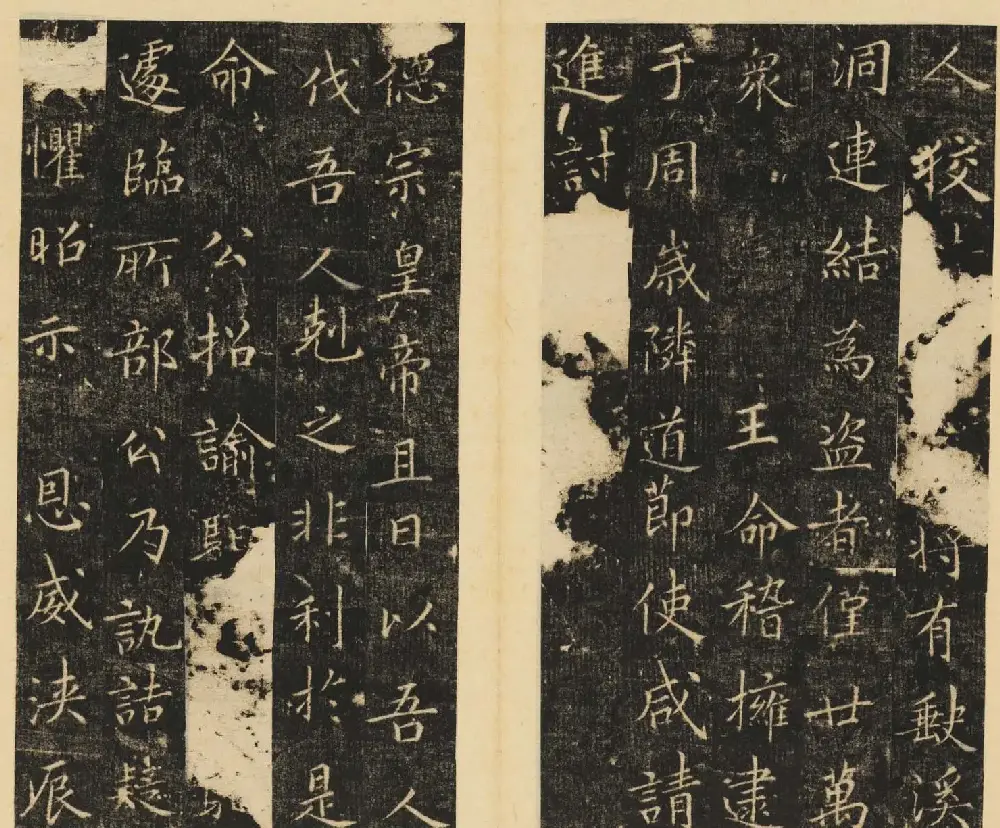 人狡将有溪
洞連結為盜者僅廿萬
衆王命稽擁逮
于周歳隣道節使咸請
進討
德宗皇帝且曰以吾人
伐吾人剋之非利於是
命公招諭
遽臨所部公乃訊詰
懼昭示恩威浹辰